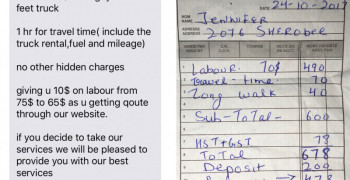 feet truck
1 hr for travel time( include the
truck rental,fuel and mileage)
no other hidden charges
giving u 10$ on labour from
75$ to 65$ as u getting qoute
through our website.
if you decide to take our
services we will be pleased to
provide you with our best
services
24-10-2017
NAME
JENNIFER
ADDRESS
2076 SHEROBEE
Labour. 70$ 490
Travel-time 70
Long walk 40
Sub-Total- 600
HST+GST 78
Total 678
Deposit 200
→ 478